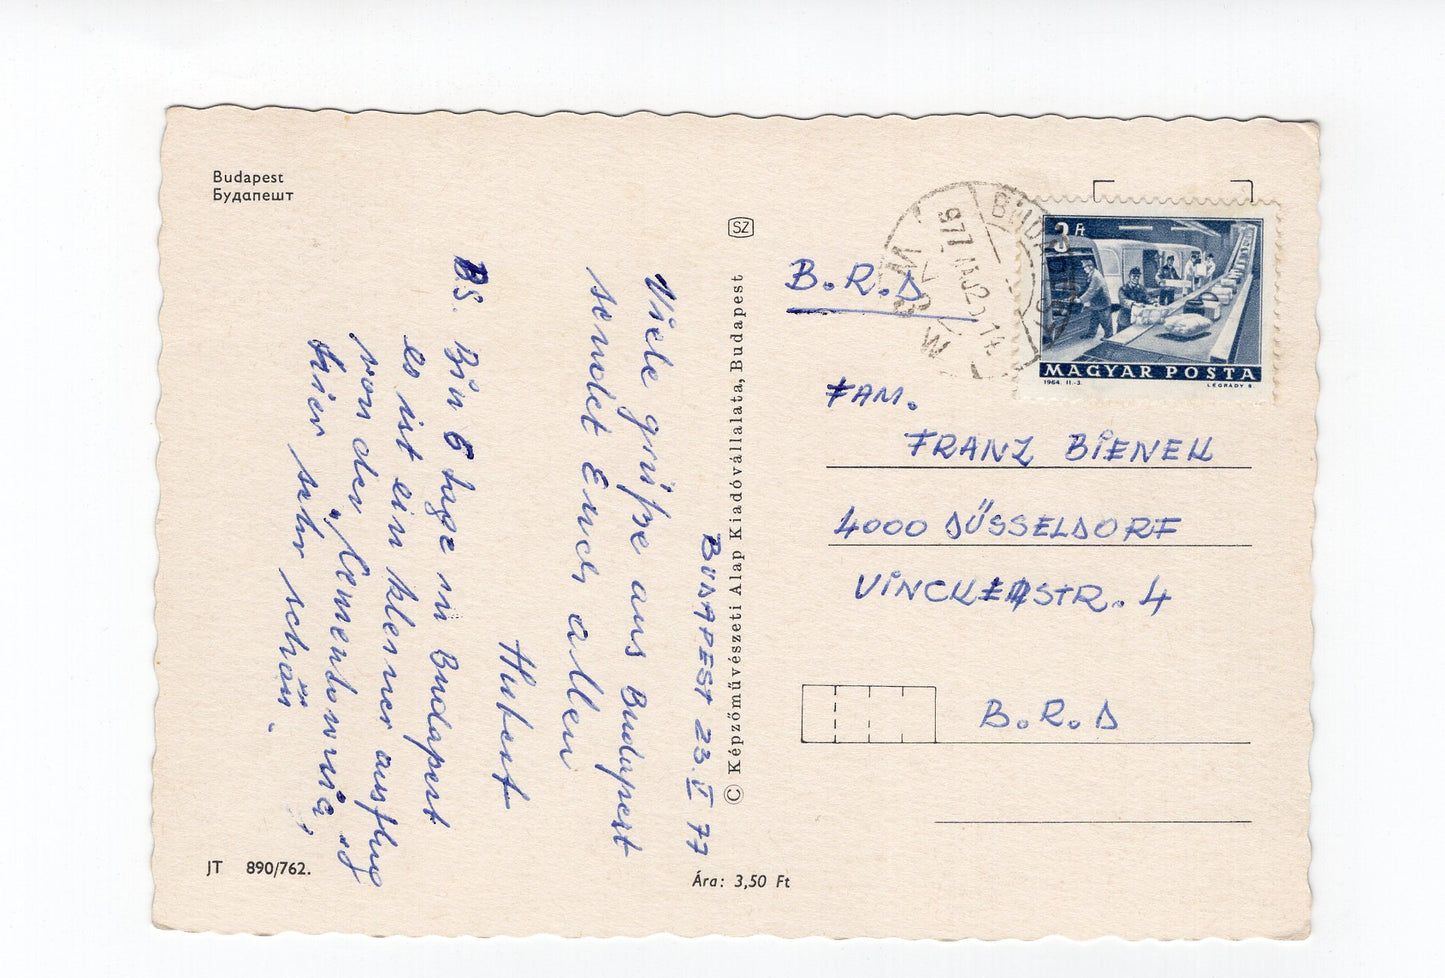 Budapest
Будапешт
BUDAPEST 23. V 77
Viele grüße aus Budapest
sendet Euch allen
Hubert
BS. Bin 6 tage in Budapest
es ist ein kleiner ausflug
von der
hier sehr schön.
JT 890/762.
SZ
© Képzőművészeti Alap Kiadóvállalata, Budapest
Ára: 3,50 Ft
BUDAPEST
977
3 Ft
MAGYAR POSTA
1964. II.-3.
LÉGRÁDY S.
B.R.D
FAM.
FRANZ BIENEK
4000 DÜSSELDORF
VINCKESTR. 4
B.R.D